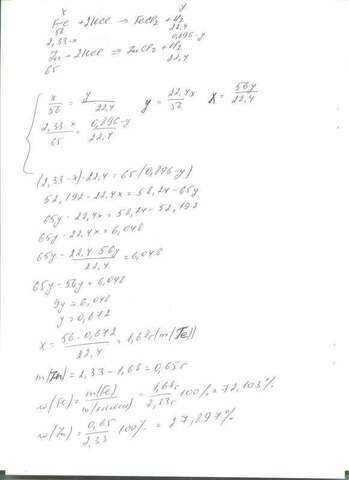 x y
Fe + 2HCl => FeCl2 + H2
56 22,4
2,33-x 0,896-y
Zn + 2HCl => ZnCl2 + H2
65 22,4
x/56 = y/22,4 y = 22,4x/56 x = 56y/22,4
2,33-x/65 = 0,896-y/22,4
(2,33-x)·22,4 = 65(0,896-y)
52,192-22,4x = 58,24-65y
65y-22,4x = 58,24-52,192
65y-22,4x = 6,048
65y - 22,4·56y/22,4 = 6,048
65y-56y = 6,048
9y = 6,048
y = 0,672
x = 56·0,672/22,4 = 1,68г(m(Fe))
m(Zn) = 2,33-1,68 = 0,65г
w(Fe) = m(Fe)/m(смеси) = 1,68г/2,33г ·100% = 72,103%
w(Zn) = 0,65/2,33 ·100% = 27,897%